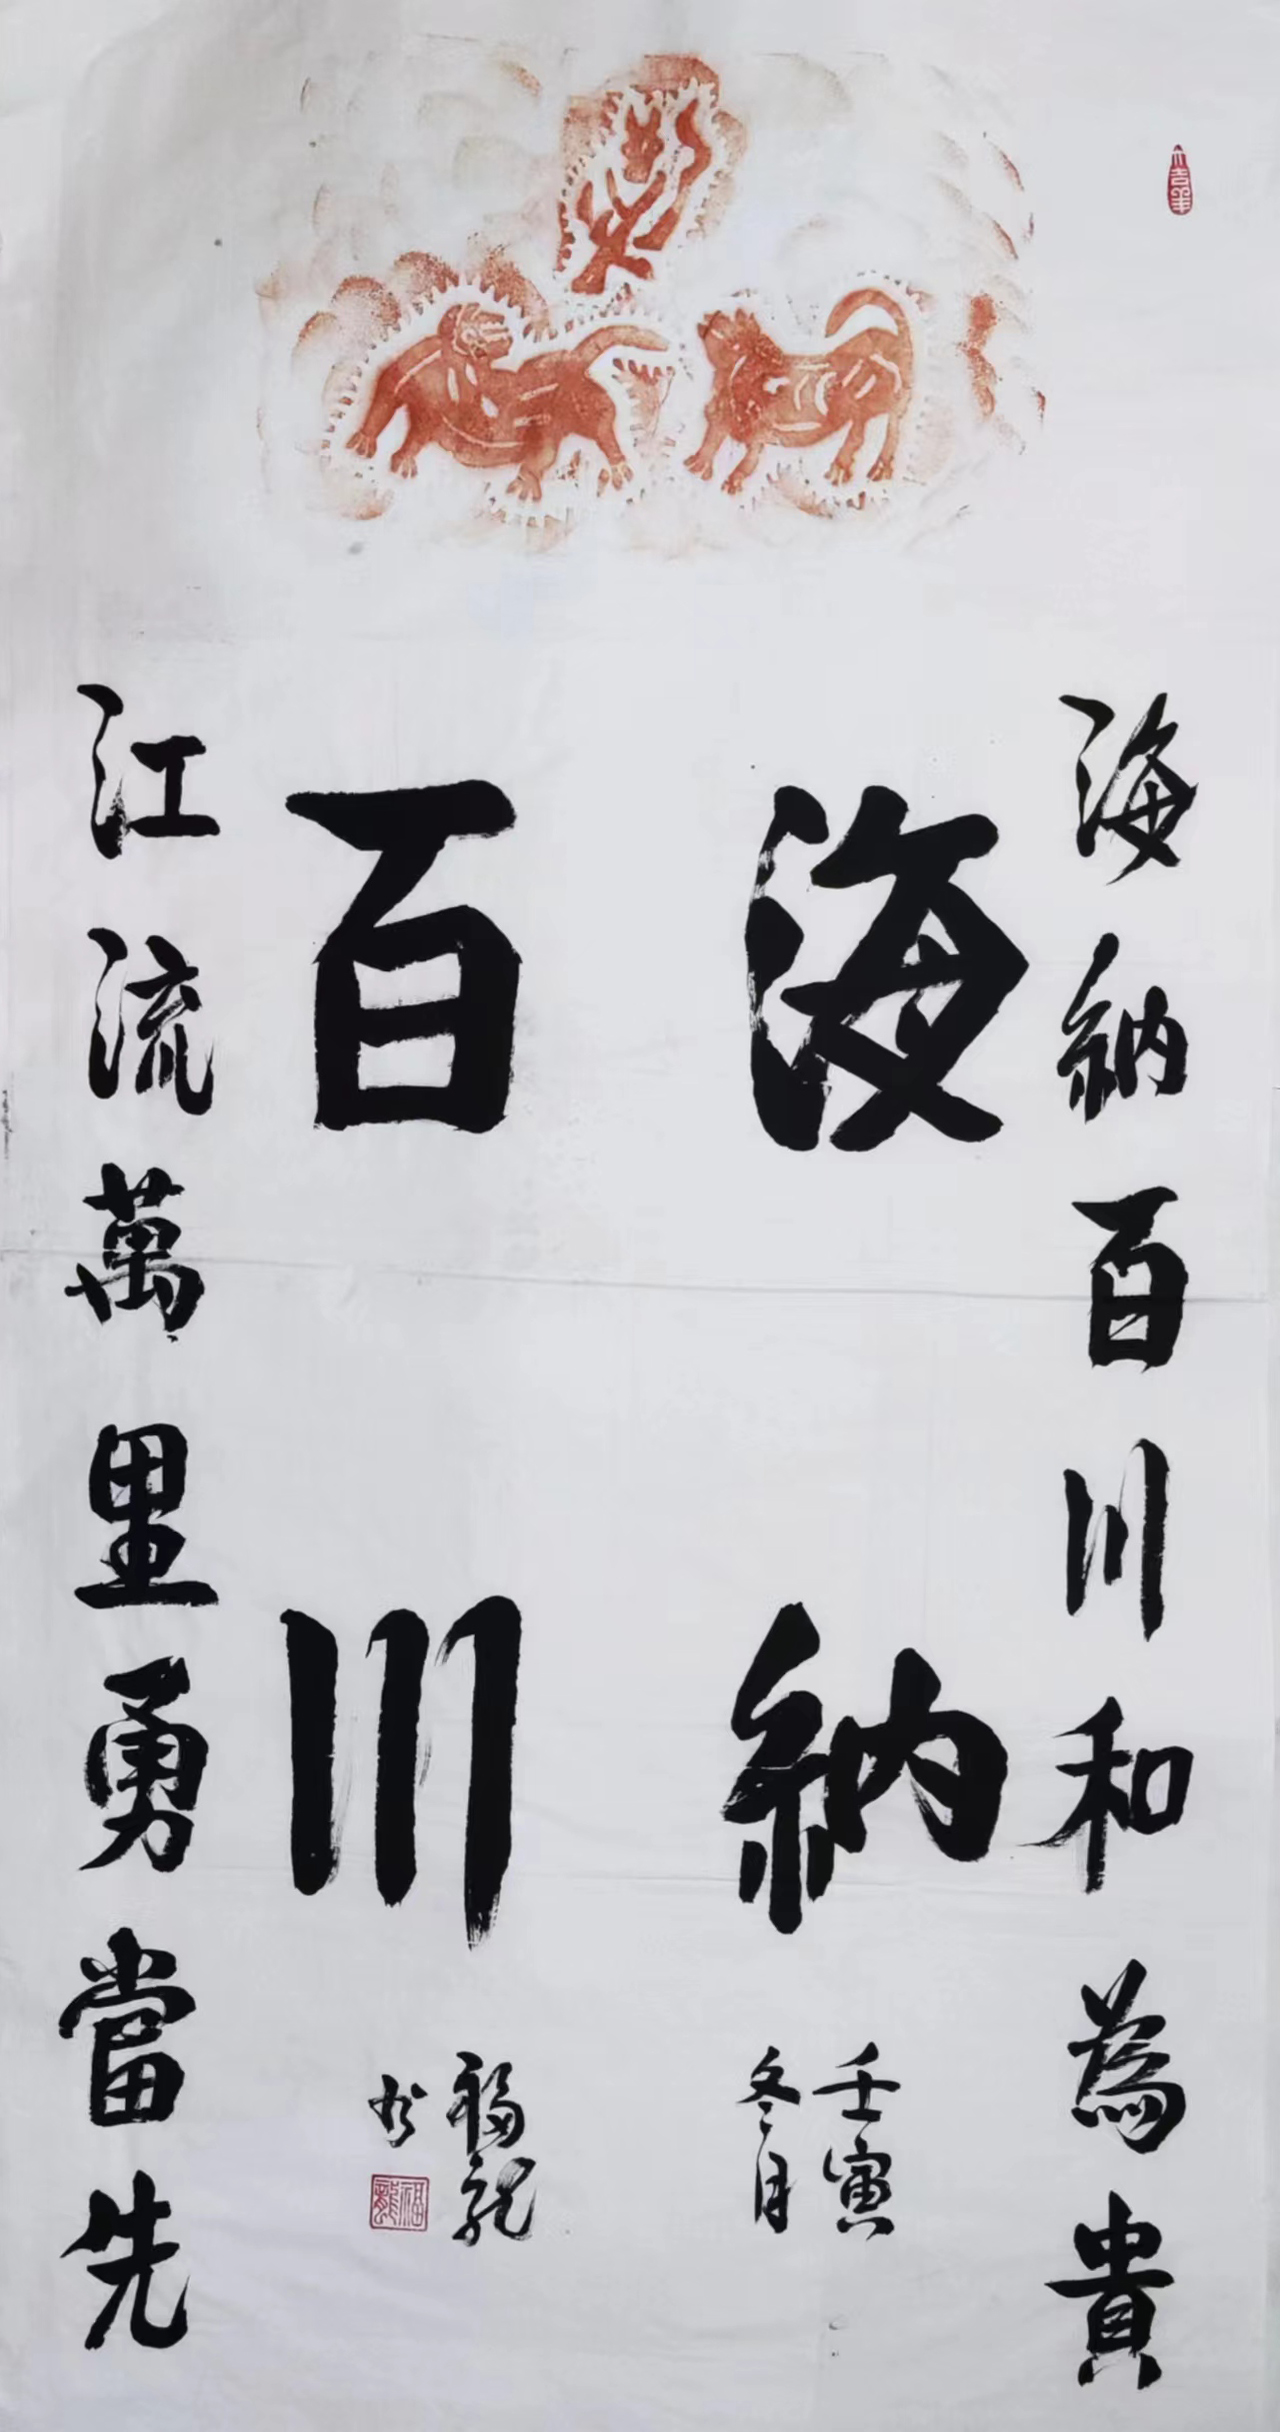 海納百川和為貴
海納
百川
江流萬里勇當先
壬寅
冬月
福龍
書
福龍